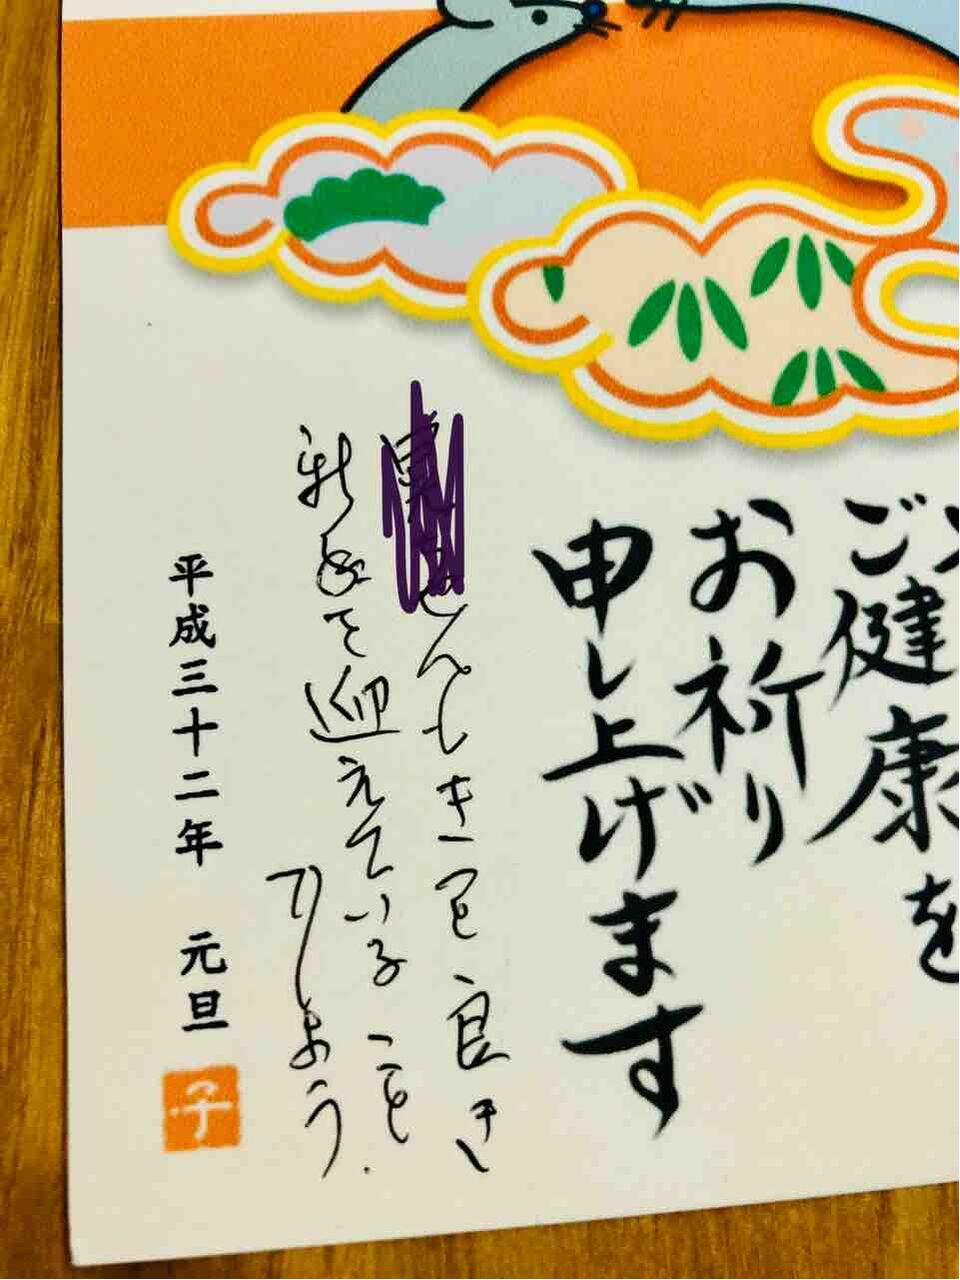 ご健康を
お祈り
申し上げます
さんもきっと良き
新年を迎えていること
でしょう
平成三十二年 元旦
子